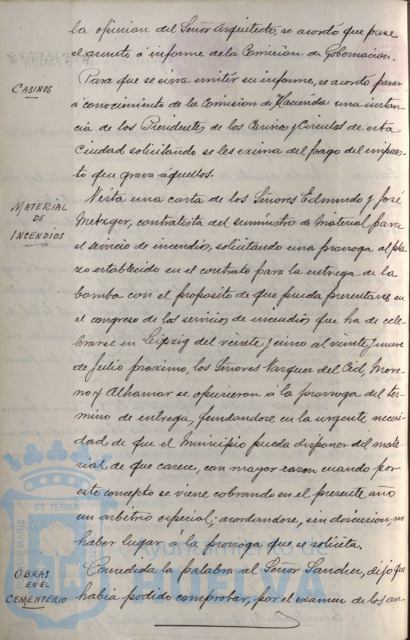 la opinion del Señor Arquitecto, se acordó que pase
el asunto á informe de la Comision de Gobernacion.
CASINOS
Para que se sirva emitir su informe, se acordó pasar
a conocimiento de la Comision de Hacienda una instan-
cia de los Presidentes de los Casinos y Circulos de esta
Ciudad solicitando se les exima del pago del impues-
to que grava á aquellos.
MATERIAL
DE
INCENDIOS
Vista una carta de los Señores Edmundo y José
Metzger, contratista del suministro de material para
el servicio de incendios, solicitando una prorroga al pla-
zo establecido en el contrato para la entrega de la
bomba con el proposito de que pueda presentarse en
el congreso de los servicios de incendios que ha de cele-
brarse en Leipzig del veinte y cinco al veinte y nueve
de Julio proximo, los Señores Vazquez del Cid, More-
no y Alhamar se opusieron á la prorroga del ter-
mino de entrega, fundandose en la urgente necesi-
dad de que el Municipio pueda disponer del mate-
rial de que carece, con mayor razon cuando por
este concepto se viene cobrando en el presente año
un arbitrio especial; acordandose, sin discucion, no
haber lugar a la prorroga que se solicita.
OBRAS
EN EL
CEMENTERIO
Concedida la palabra al Señor Sanchez, dijo que
habia podido comprobar, por el examen de los an-
Ayuntamiento de
HUELVA